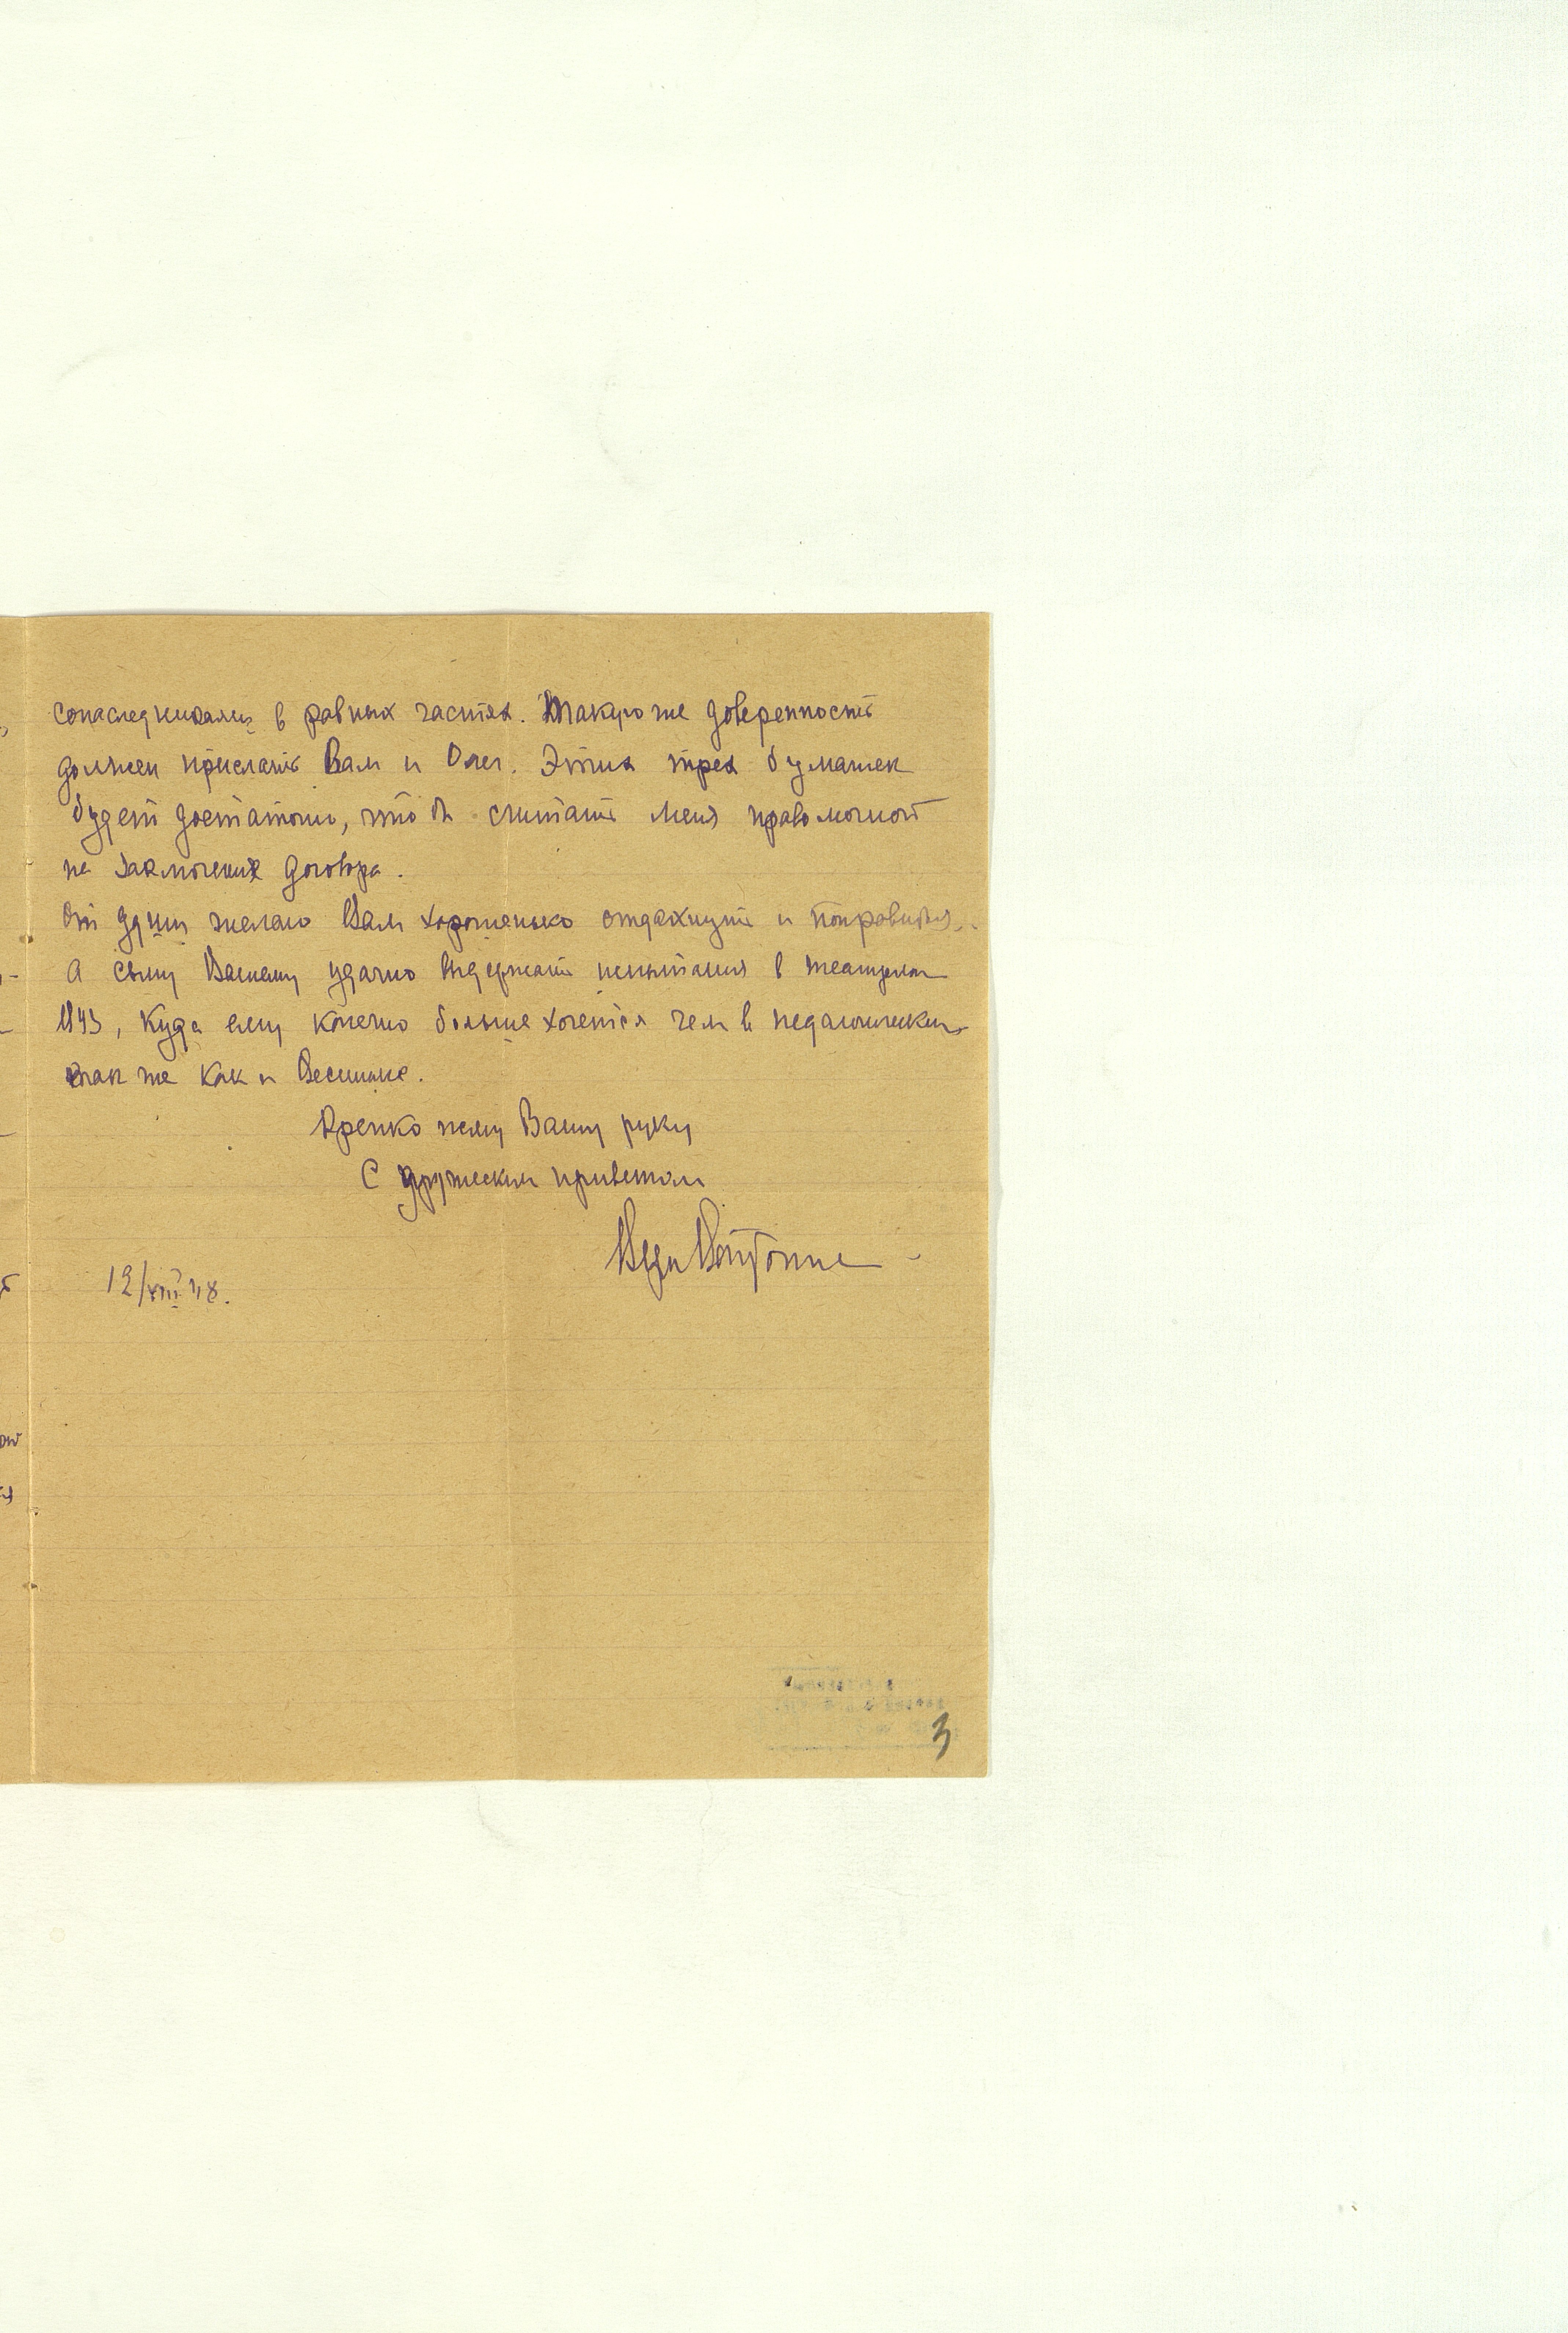 сонаследниками в равных частях. Такую же доверенность
должен прислать Вам и Олег. Этих трех бумажек
будет достаточно, что б считать меня правомочной
на заключения договора.
От души желаю Вам хорошенько отдохнуть и поправиться.
А сыну Вашему удачно выдержать испытания в театральн
ВУЗ, куда ему конечно больше хочется чем в педагогический
так же как и
Крепко жму Вашу руку
С дружеским приветом
12/VIII 48.
3